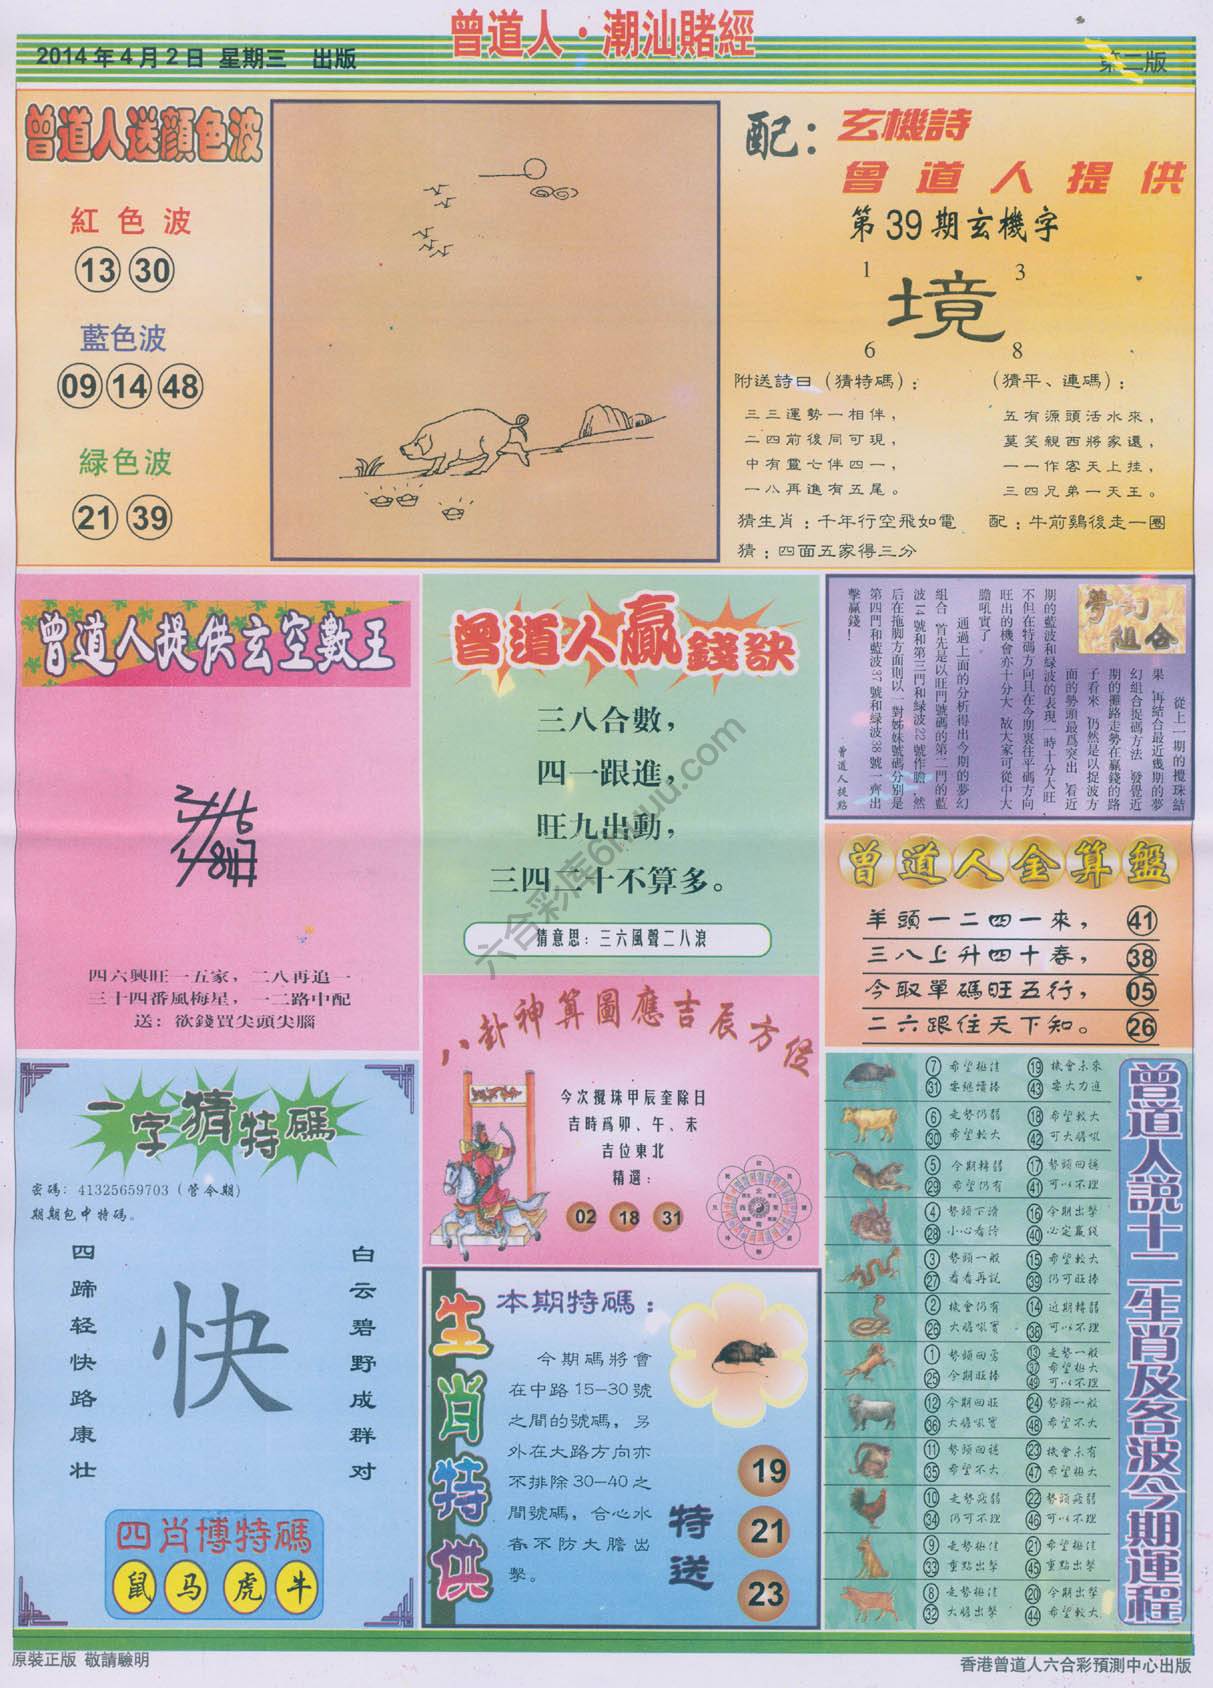 曾道人·潮汕賭經
2014年4月2日 星期三 出版
第二版
曾道人送顏色波
紅色波
13 30
藍色波
09 14 48
緑色波
21 39
配：
玄機詩
曾道人提供
第39期玄機字
1 3
境
6 8
附送詩曰（猜特碼）：
三三運勢一相伴，
二四前後同可現，
中有靈七伴四一，
一八再進有五尾。
（猜平、連碼）：
五有源頭活水來，
莫笑親西將家還，
一一作客天上挂，
三四兄弟一天王。
猜生肖：千年行空飛如電
配：牛前鷄後走一圈
猜：四面五家得三分
曾道人提供玄空數王
四六興旺一五家，二八再追一
三十四番風梅星，一二路中配
送：欲錢買尖頭尖腦
曾道人贏錢訣
三八合數，
四一跟進，
旺九出動，
三四二十不算多。
猜意思：三六風聲二八浪
夢幻組合
從上一期的攪珠結
果，再結合最近幾期的夢
幻組合捉碼方法，發覺近
期的攤路走勢在贏錢的路
子看來，仍然是以捉波方
面的勢頭最爲突出，看近
期的藍波和緑波的表現一時十分大旺
不但在特碼方向且在今期裏往平碼方向
旺出的機會亦十分大，故大家可從中大
膽吼實了。
通過上面的分析得出今期的夢幻
組合，首先是以旺門號碼的第二門的藍
波14號和第三門和緑波22號作膽，然
后在拖脚方面則以一對姊妹號碼分别是
第四門和藍波37號和緑波38號一齊出
擊贏錢！
曾道人提點
曾道人金算盤
羊頭一二四一來， 41
三八上升四十春， 38
今取單碼旺五行， 05
二六跟往天下知。 26
八卦神算圖應吉辰方位
今次攪珠甲辰奎除日
吉時爲卯、午、未
吉位東北
精選：
02 18 31
一字猜特碼
密碼：41325659703（管令期）
期期包中特碼。
四蹄轻快路康壮
快
白云碧野成群对
四肖博特碼
鼠 马 虎 牛
生肖特供
本期特碼：
今期碼將會
在中路15—30號
之間的號碼，另
外在大路方向亦
不排除30—40之
間號碼，合心水
者不防大膽出
擊。
特送
19
21
23
曾道人説十二生肖及各波今期運程
7 希望極佳 19 機會未來
31 妄繼續捧 43 妄大力追
6 走勢仍弱 18 希望較大
30 希望較大 42 可大膽吼
5 今期轉弱 17 勢頭回穩
29 希望仍有 41 可以不理
4 勢頭下滑 16 今期出擊
28 小心看待 40 必定贏錢
3 勢頭一般 15 希望較大
27 看看再説 39 仍可旺捧
2 機會仍有 14 近期轉弱
26 大膽吼實 38 可以不理
1 勢頭回落 13 走勢一般
25 今期旺捧 37 希望極大
49 可以不理
12 今期回旺 24 勢頭一般
36 大膽吼實 48 希望不大
11 勢頭回穩 23 機會未有
35 希望不大 47 希望極大
10 走勢疲弱 22 勢頭疲弱
34 仍可不理 46 可以不理
9 走勢極佳 21 希望極佳
33 重點出擊 45 重點出擊
8 走勢極佳 20 今期出擊
32 大膽出擊 44 希望較大
原裝正版 敬請驗明
香港曾道人六合彩預測中心出版